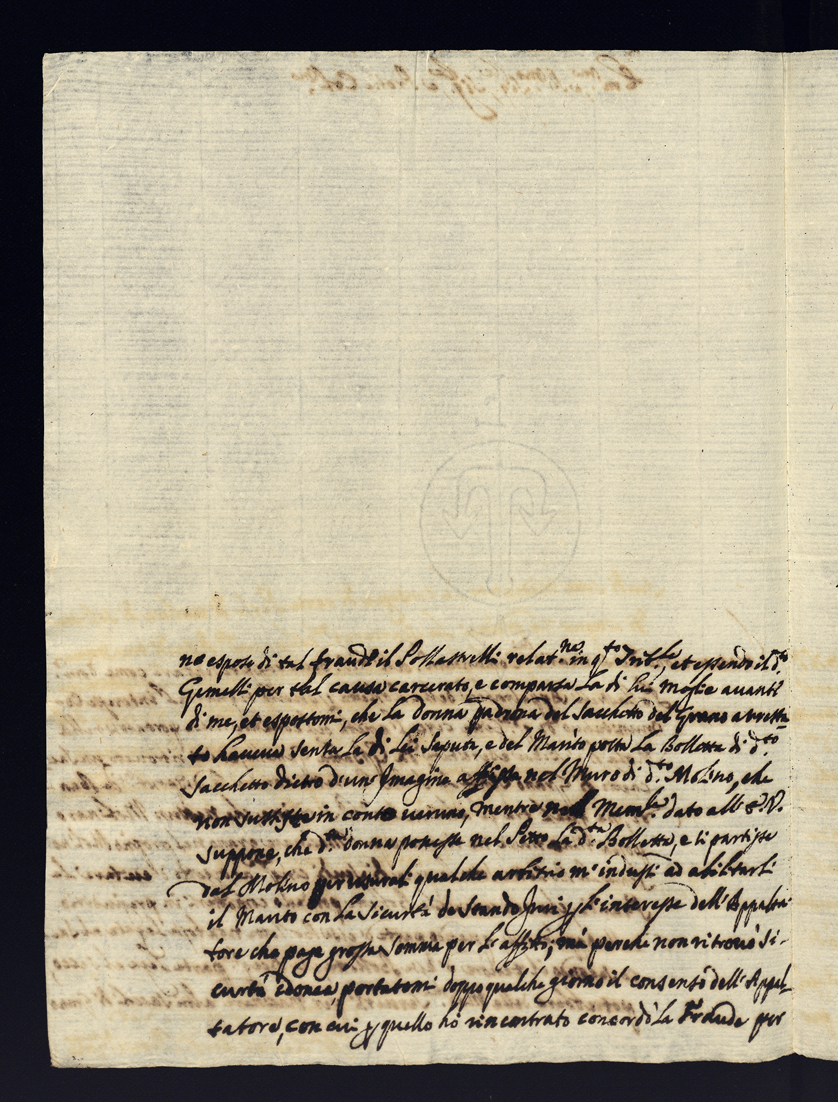 no espose di tal fraude il Pollastrelli relat.ne in q.to Trib.le, et essendo il d.to
Gemelli per tal causa carcerato, e comparsa la di lui moglie avanti
di me, et espostomi, che la donna padrona del sacchetto del Grano arresta-
to haveva senza la di lei saputa, e del Marito posta la Bolletta di d.to
sacchetto dietro d'un Imagine affissa nel Muro di d.to Molino, che
non sussiste in conto veruno, mentre nel Mem.le dato all' E. V.
suppone, che d.ta donna ponesse nel Petto la d.ta Bolletta, e si partisse
dal Molino per qualche arbitrio m' indussi ad abilitarli
il Marito con la sicurtà de Stando Juri p l' interesse dell' Appalta-
tore che paga grossa somma per l' affitto; mà perche non ritrovò si-
curtà idonea, portatomi doppo qualche giorno il consenso dell' Appal-
tatore, con cui p quello hò rincontrato concordò la Fraude per